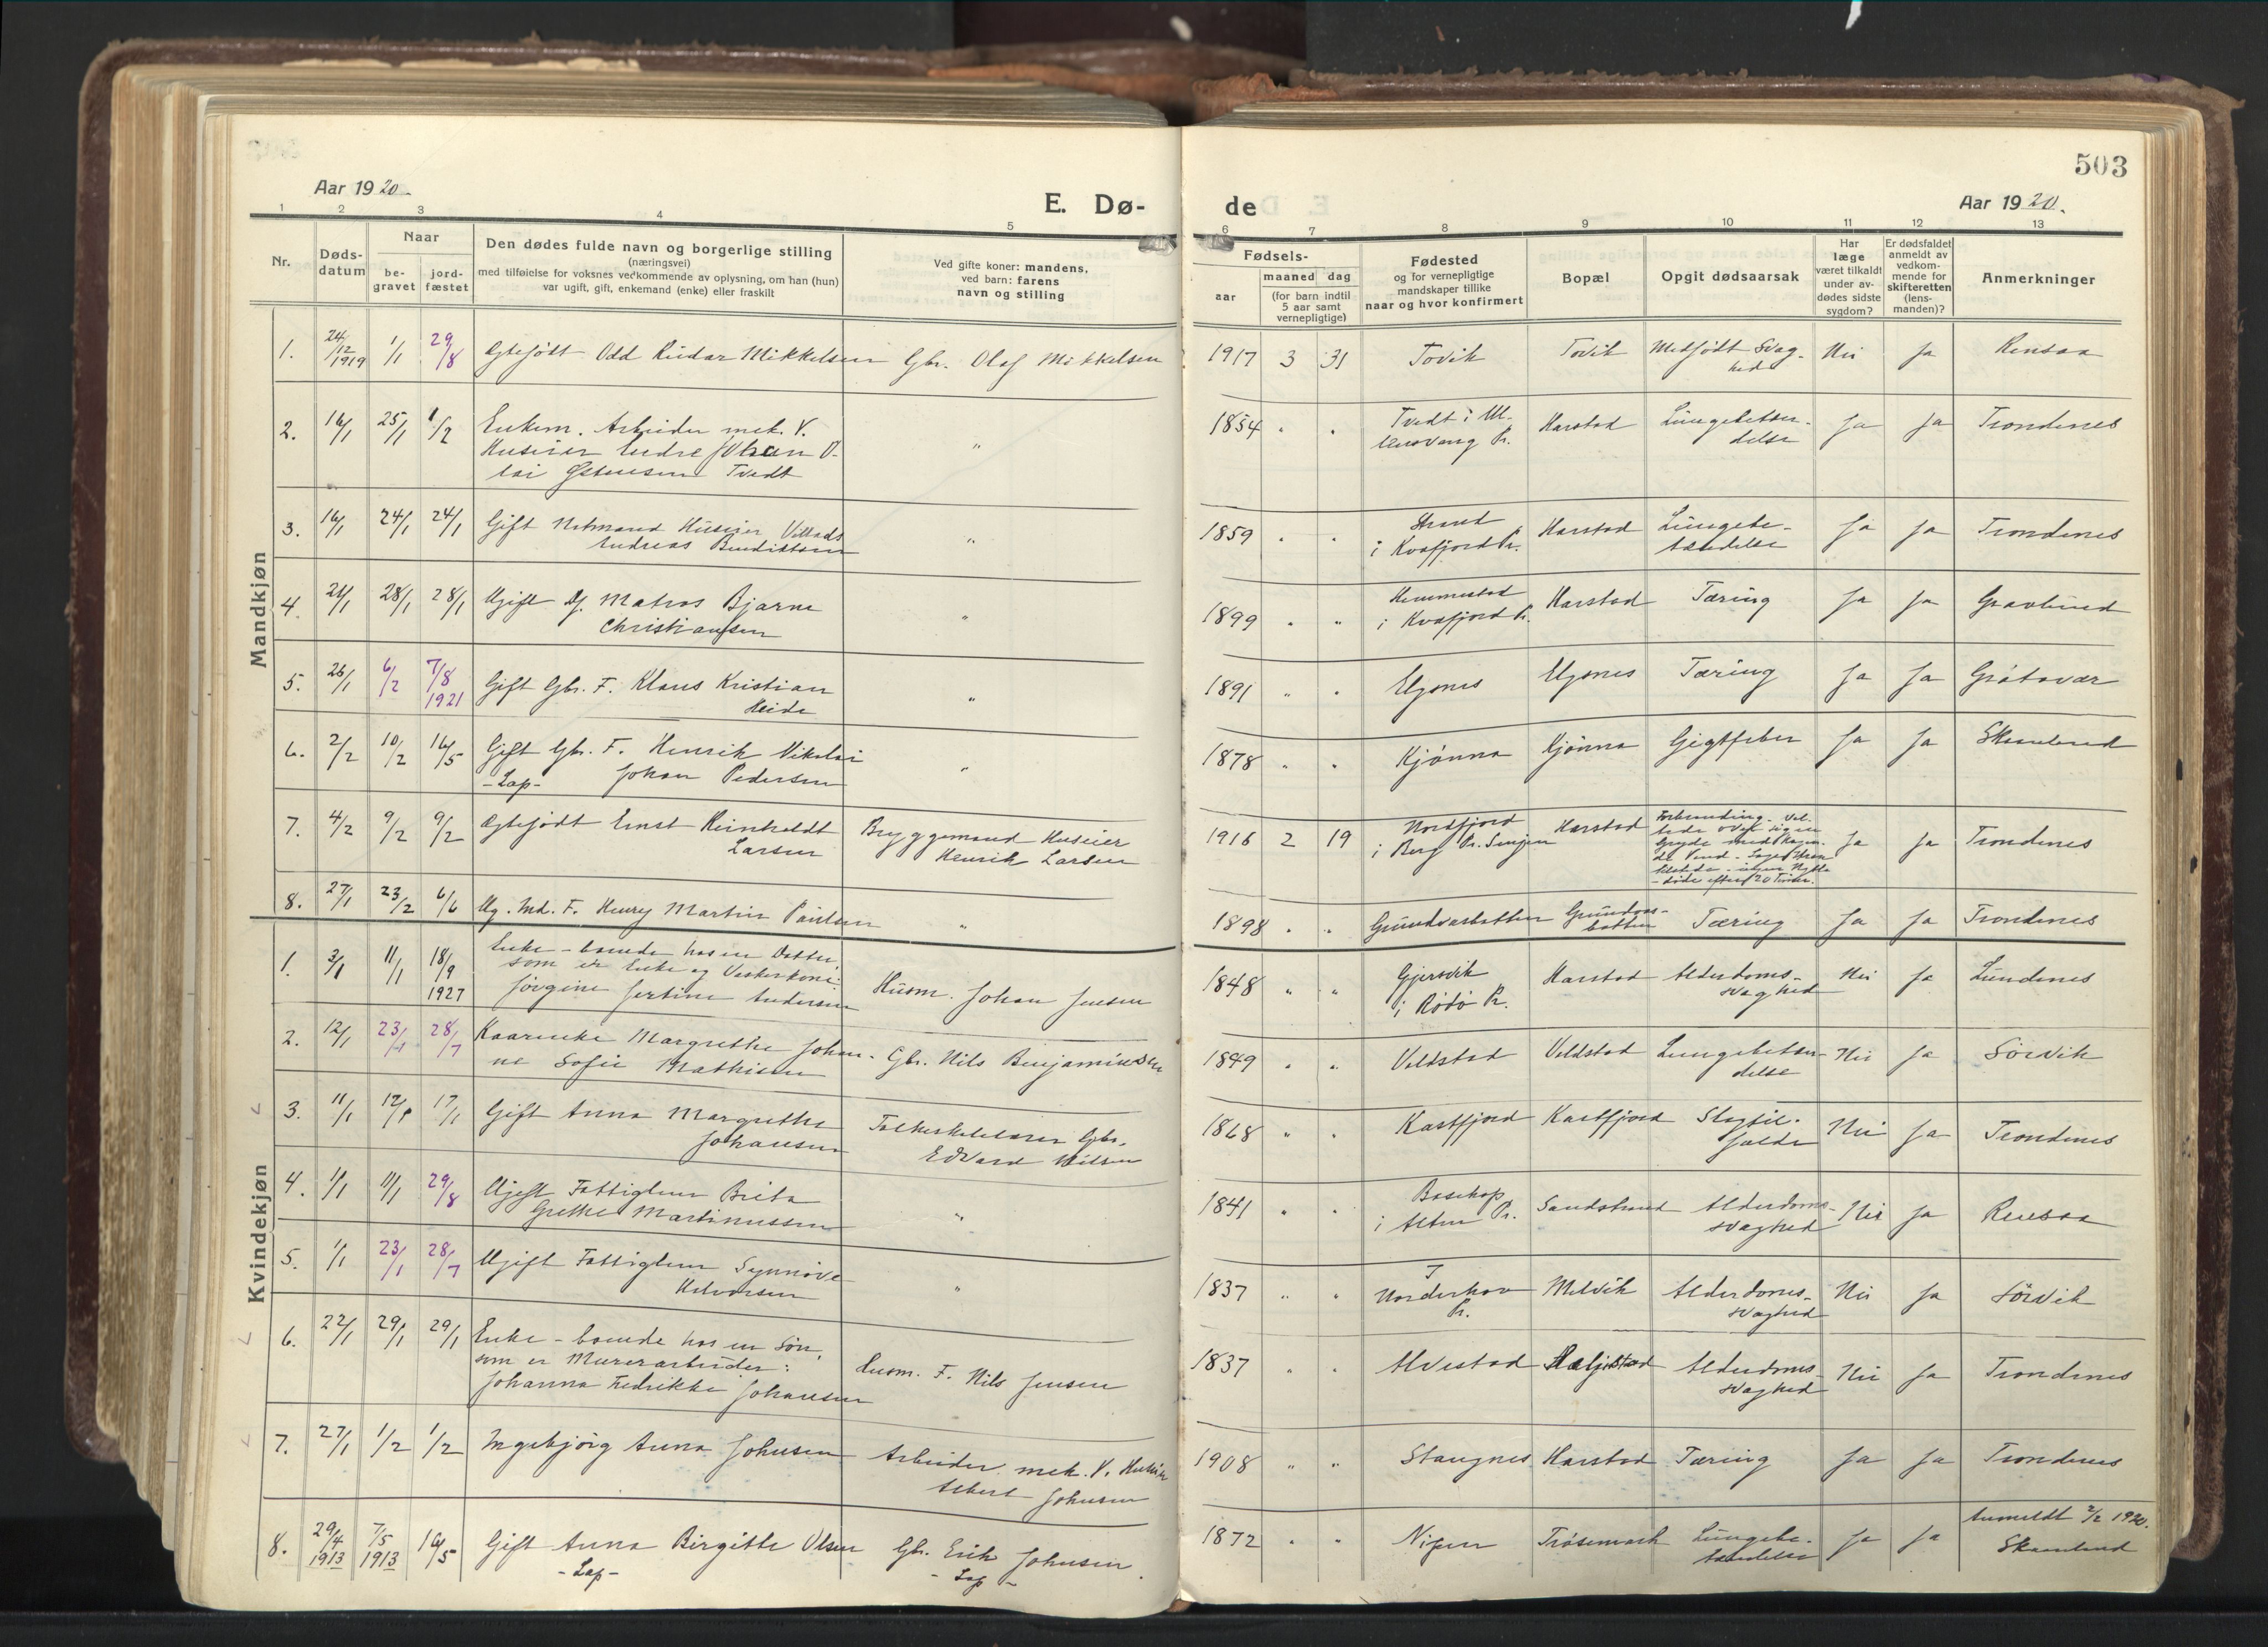 503
Aar 1920.
E. Dø-
de
Aar 1920.
1 2 3 4 5
6 7 8 9 10 11 12 13
Nr.
Døds-
datum
Naar
be-
gravet
jord-
fæstet
Den dødes fulde navn og borgerlige stilling
(næringsvei)
med tilføielse for voksnes vedkommende av oplysning, om han (hun)
var ugift, gift, enkemand (enke) eller fraskilt
Ved gifte koner: mandens,
ved barn: farens
navn og stilling
Fødsels-
aar
maaned dag
(for barn indtil
5 aar samt
vernepligtige)
Fødested
og for vernepligtige
mandskaper tillike
naar og hvor konfirmert
Bopæl
Opgit dødsaarsak
Har
læge
været tilkaldt
under av-
dødes sidste
sygdom?
Er dødsfaldet
anmeldt av
vedkom-
mende for
skifteretten
(lens-
manden)?
Anmerkninger
Mandkjøn
1. 24/12 1919 1/1 29/8 Ægtefødt Odd Reidar Mikkelsen Gbr. Olaf Mikkelsen 1917 3 31 Tovik Tovik Medfødt Svag-
hed Nei Ja Rensaa
2. 16/1 25/1 1/2 Enkem. Arbeider mek. V.
Huseier Endre Johan O-
lai Østensen Tvedt " 1854 " " Tvedt i Ul-
lensvang Pr. Harstad Lungebetæn-
delse Ja Ja Trondenes
3. 16/1 24/1 24/1 Gift Notmand Huseier Villads
Andreas Bendiktsen " 1859 " " Strand
i Kvæfjord Pr. Harstad Lungebe-
tændelse Ja Ja Trondenes
4. 21/1 28/1 28/1 Ugift Df. Matros Bjarne
Christiansen " 1899 " " Hemmestad
i Kvæfjord Pr. Harstad Tæring Ja Ja Gravlund
5. 26/1 6/2 7/8 1921 Gift Gbr. F. Klaus Kristian
Heide " 1891 " " Elgsnes Elgsnes Tæring Ja Ja Grøtavær
6. 2/2 10/2 16/5 Gift Gbr. F. Henrik Nikolai
- Lap - Johan Pedersen " 1878 " " Kjønna Kjønna Gigtfeber Ja Ja Skamlund
7. 4/2 9/2 9/2 Ægtefødt Ernst Reinholdt
Larsen Bryggemand Huseier
Henrik Larsen 1916 2 19 Nordfjord
i Berg Pr. Senjen Harstad Forbrænding. Vel-
tede over sig en
Gryde med kogen-
de Vand
- døde efter 20 Timer. Ja Ja Trondenes
8. 27/1 23/2 6/6 Ug. Md. F. Henry Martin Paulsen " 1898 " " Grundvasbotten Grundvas-
botten Tæring Ja Ja Trondenes
Kvindekjøn
1. 3/1 11/1 18/9 1927 Enke - boende hos en Datter,
som er Enke og Vaskerkone:
Jørgine Jertine Andersen Husm. Johan Jensen 1848 " " Gjersvik
i Rødø Pr. Harstad Alderdoms-
svaghed Nei Ja Lundenes
2. 12/1 23/1 28/7 Kaarenke Margrethe Johan-
ne Sofie Mathisen Gbr. Nils Benjaminsen 1849 " " Veldstad Veldstad Lungebetæn-
delse Nei Ja Sørvik
3. 11/1 17/1 17/1 Gift Anna Margrethe
Johansen Folkeskolelærer Gbr.
Edvard Nilsen 1868 " " Kastfjord Kastfjord Slagtil-
fælde Nei Ja Trondenes
4. 1/1 11/1 29/8 Ugift Fattiglem Brita
Grethe Martinussen " 1841 " " Bosekop
i Alten Pr. Sandstrand Alderdoms-
svaghed Nei Ja Rensaa
5. 1/1 23/1 28/7 Ugift Fattiglem Synnøve
Halvorsen " 1837 " " I
Norderhov
Pr. Melvik Alderdoms-
svaghed Nei Ja Sørvik
6. 22/1 29/1 29/1 Enke - boende hos en Søn,
som er Murerarbeider:
Johanna Fredrikke Johansen Husm. F. Nils Jensen 1837 " " Alvestad Alderdoms-
svaghed Nei Ja Trondenes
7. 27/1 1/2 1/2 Ingebjørg Anna Johnsen Arbeider mek. V. Huseier
Albert Johnsen 1908 " " Stangnes Harstad Tæring Ja Ja Trondenes
8. 29/4 1913 7/5 1913 16/5 Gift Anna Birgitte Olsen
- Lap - Gbr. Erik Johnsen.
- Lap - 1872 " " Nipen Trøsemark Lungebe-
tændelse Ja Ja Anmeldt 2/2 1920.
Skamlund